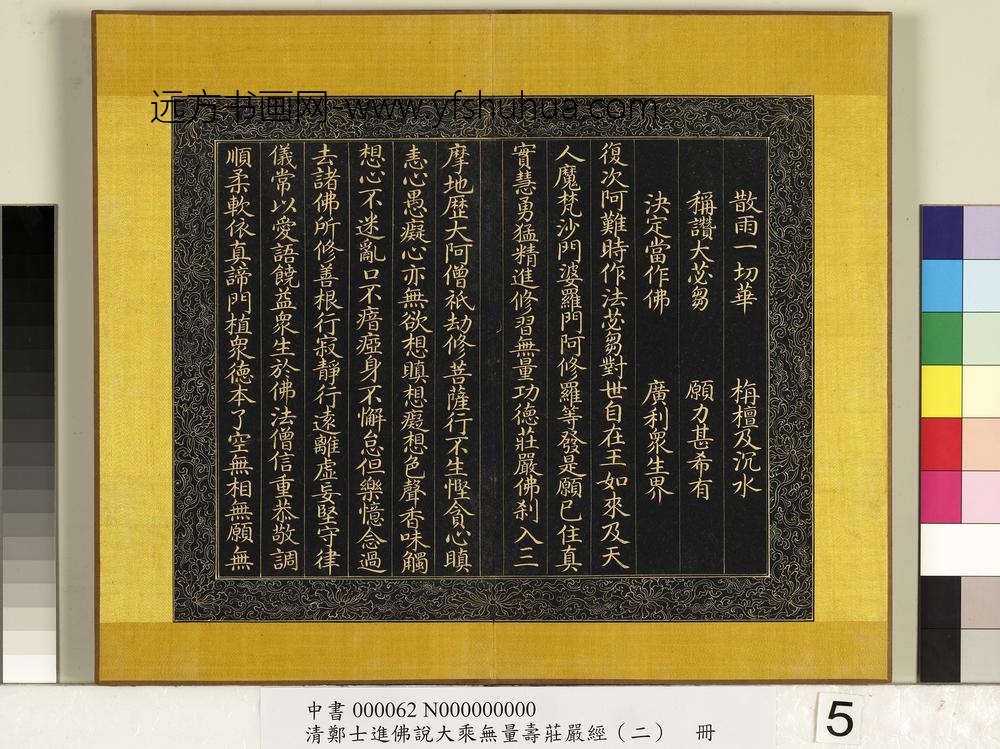 远方书画网-www.yfshuhua.com
散雨一切華　栴檀及沉水
稱讚大苾芻　願力甚希有
決定當作佛　廣利眾生界
復次阿難時作法苾芻對世自在王如來及天
人魔梵沙門婆羅門阿修羅等發是願已住真
實慧勇猛精進修習無量功德莊嚴佛刹入三
摩地歴大阿僧祇劫修菩薩行不生慳貪心瞋
恚心愚癡心亦無欲想瞋想癡想色聲香味觸
想心不迷亂口不瘖瘂身不懈怠但樂憶念過
去諸佛所修善根行寂靜行遠離虛妄堅守律
儀常以愛語饒益眾生於佛法僧信重恭敬調
順柔軟依真諦門植眾德本了空無相無願無
中書 000062 N000000000
清鄭士進佛說大乘無量壽莊嚴經（二）　冊
5